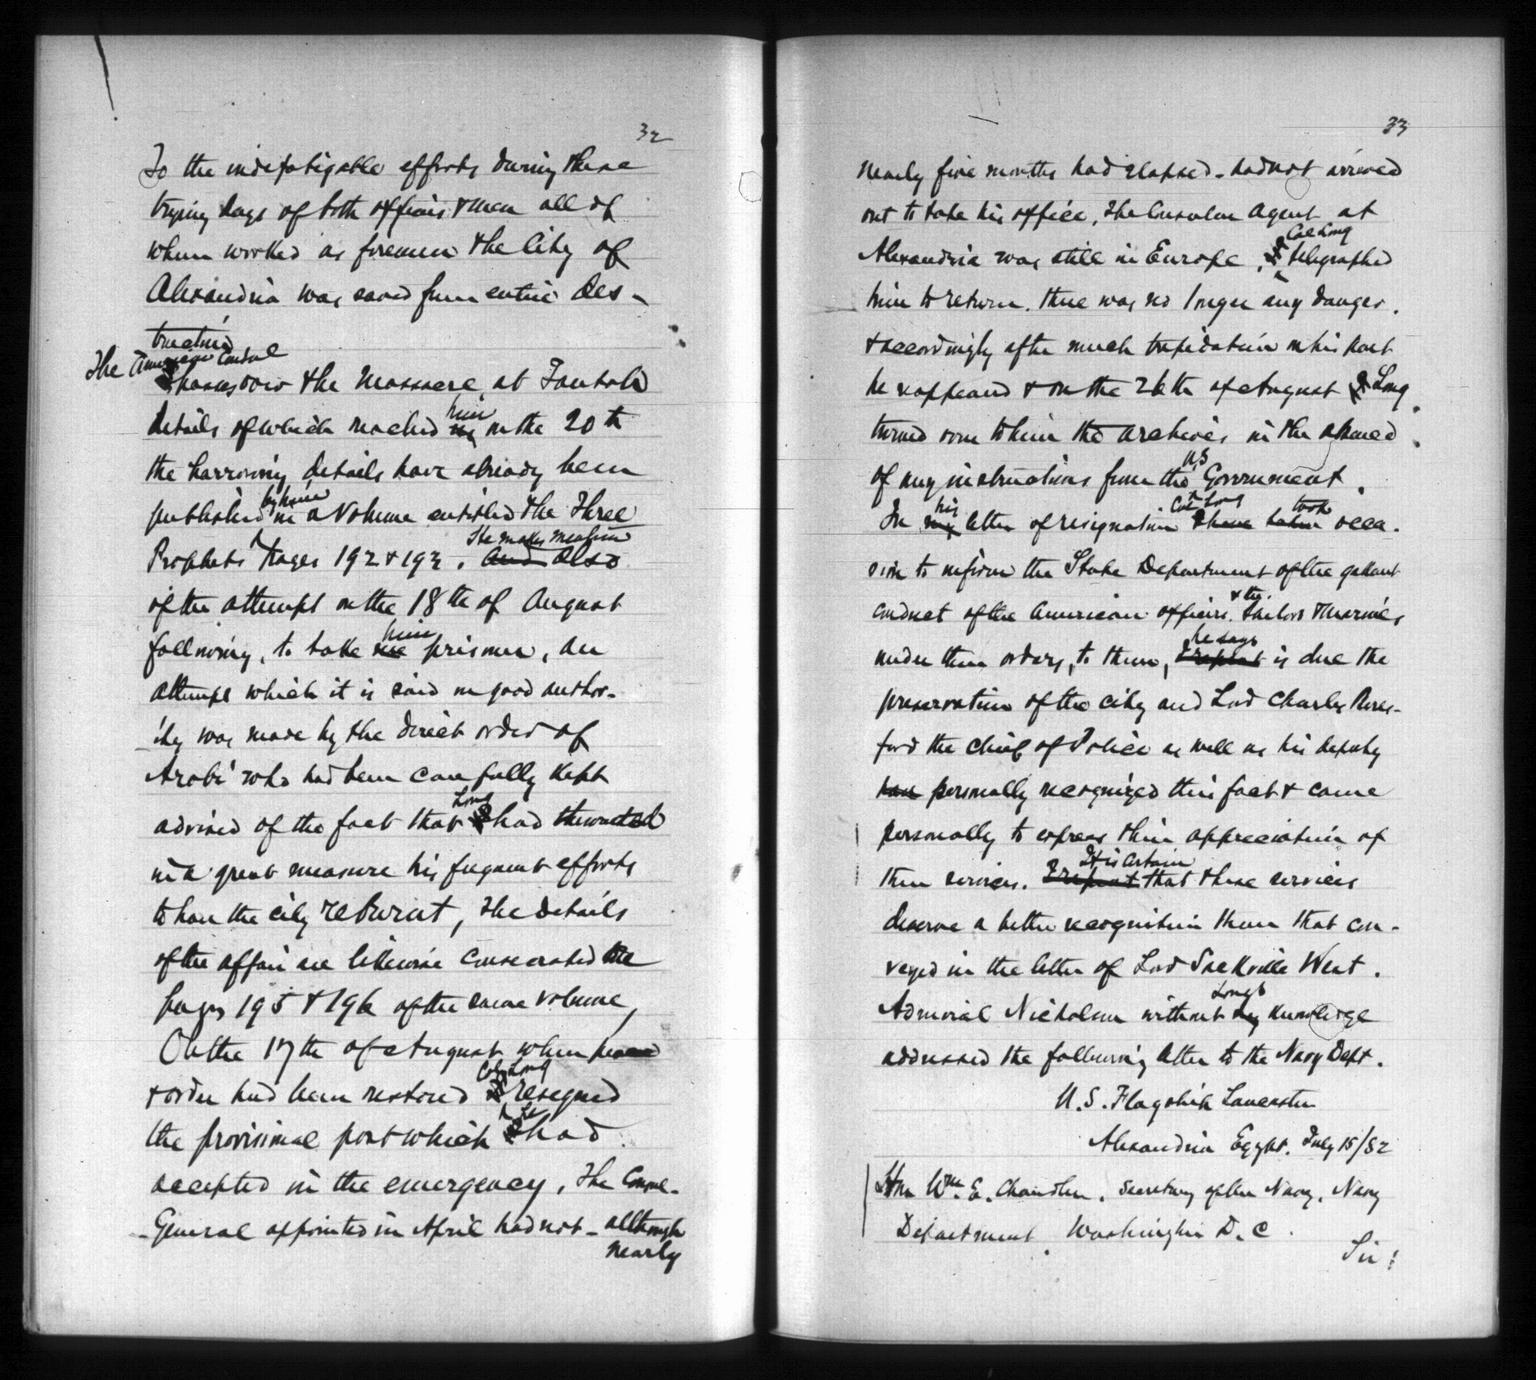 32
To the indefatigable efforts during these
trying days of both officers & men all of
whom worked as firemen the City of
Alexandria was saved from entire des-
truction
The American Consul
the Massacre at Tantah
details of which reached him me on the 20th
the harrowing details have already been
published by him in a volume entitled The Three
Prophets Pages 192 & 193. He makes mention And also
of the attempt on the 18th of August
following, to take him me prisoner, an
attempt which it is said on good author-
ity was made by the direct order of
Arabi who had been carefully kept
advised of the fact that Long I had thwarted
in a great measure his frequent efforts
to have the city reburnt, The details
of the affair are likewise consecrated the
pages 195 & 196 of the same volume,
On the 17th of August when peace
& order had been restored Col Long I resigned
the provisional post which he I had
accepted in the emergency. The Consul-
General appointed in April had not - although
nearly
33
nearly five months had elapsed - had not arrived
out to take his office, the Consular Agent at
Alexandria was still in Europe, Col Long I telegraphed
him to return. there was no longer any danger.
& accordingly after much trepidation on his part
he reappeared & on the 26th of August I Long
turned over to him the archives in the absence
of any instructions from the U.S Government.
In his my letter of resignation Col Long I have taken took occa-
sion to inform the State Department of the gallant
conduct of the American officers & the sailors & marines
under their orders, to them, he says I repeat is due the
preservation of the city and Lord Charles Beres-
ford the chief of Police as well as his deputy
have personally recognized this fact & came
personally to express their appreciation of
their services. It is certain I repeat that these services
deserve a better recognition than that con-
veyed in the letter of Lord Sackville West.
Admiral Nicholson without Long's my knowledge
addressed the following letter to the Navy Dept.
U.S. Flagship Lancaster
Alexandria Egypt. July 15/82
Hon Wm. E. Chandler. Secretary of the Navy. Navy
Department. Washington D.C.
Sir: